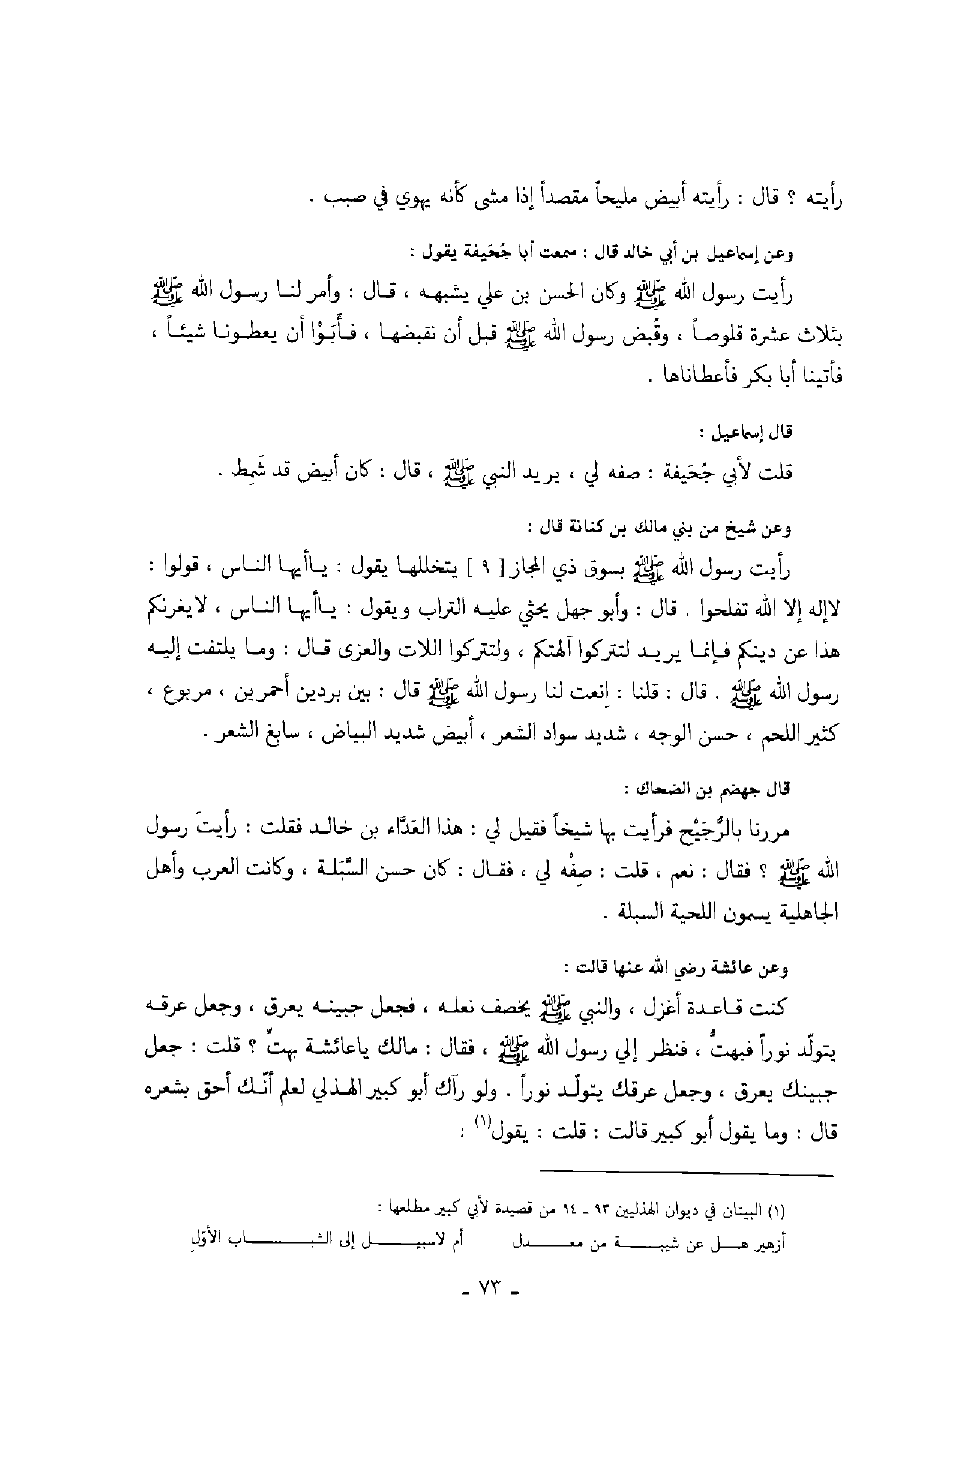 رأيته ؟ قال : رأيته أبيض مليحاً مقصداً إذا مشى كأنه يهوي في صبب .
وعن إسماعيل بن أبي خالد قال : سمعت أبا جُحَيفة يقول :
رأيت رسول الله ﷺ وكان الحسن بن علي يشبهه ، قال : وأمر لنا رسول الله ﷺ
بثلاث عشرة قلوصاً ، وقُبض رسول الله ﷺ قبل أن نقبضها ، فأبَوْا أن يعطونا شيئاً ،
فأتينا أبا بكر فأعطاناها .
قال إسماعيل :
قلت لأبي جُحَيفة : صفه لي ، يريد النبي ﷺ ، قال : كان أبيض قد شَمِط .
وعن شيخ من بني مالك بن كنانة قال :
رأيت رسول الله ﷺ بسوق ذي المجاز [ ٩ ] يتخللها يقول : ياأيها الناس ، قولوا :
لاإله إلا الله تفلحوا . قال : وأبو جهل يحثي عليه التراب ويقول : ياأيها الناس ، لايغرنكم
هذا عن دينكم فإنما يريد لتتركوا آلهتكم ، ولتتركوا اللات والعزى قال : وما يلتفت إليه
رسول الله ﷺ . قال : قلنا : إنعت لنا رسول الله ﷺ قال : بين بردين أحمرين ، مربوع ،
كثير اللحم ، حسن الوجه ، شديد سواد الشعر ، أبيض شديد البياض ، سابغ الشعر .
قال جهضم بن الضحاك :
مررنا بالرُّجَيْح فرأيت بها شيخاً فقيل لي : هذا العَدَّاء بن خالد فقلت : رأيتَ رسول
الله ﷺ ؟ فقال : نعم ، قلت : صِفْه لي ، فقال : كان حسن السَّبَلة ، وكانت العرب وأهل
الجاهلية يسمون اللحية السبلة .
وعن عائشة رضي الله عنها قالت :
كنت قاعدة أغزل ، والنبي ﷺ يخصف نعله ، فجعل جبينه يعرق ، وجعل عرقه
يتولّد نوراً فبهتُّ ، فنظر إلي رسول الله ﷺ ، فقال : مالك ياعائشة بهتِّ ؟ قلت : جعل
جبينك يعرق ، وجعل عرقك يتولّد نوراً . ولو رآك أبو كبير الهذلي لعلم أنّك أحق بشعره
قال : وما يقول أبو كبير قالت : قلت : يقول(١) :
(١) البيتان في ديوان الهذليين ٩٣ ـ ٩٤ من قصيدة لأبي كبير مطلعها :
أزهير هل عن شيبة من معدل أم لاسبيل إلى الشباب الأوّلِ
ـ ٧٣ ـ